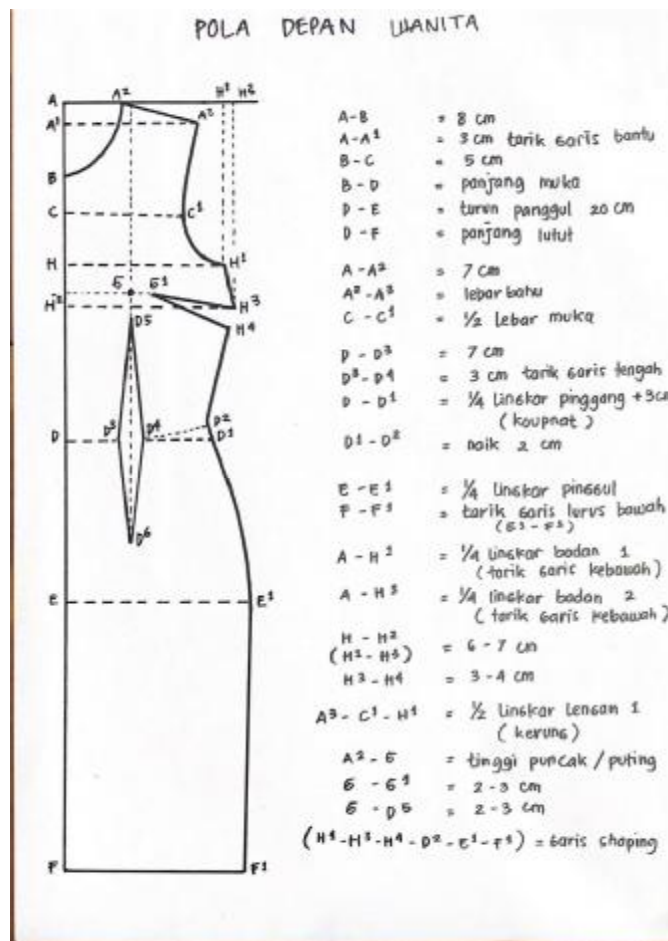 POLA DEPAN WANITA
A A² H¹ H²
A¹ A³
B
C C¹
H H¹
G G¹
H² H³
D5 H4
D D³ D4 D² D1
D6
E E¹
F F¹
A-B = 8 cm
A-A¹ = 3 cm tarik garis bantu
B-C = 5 cm
B-D = panjang muka
D-E = turun panggul 20 cm
D-F = panjang lutut
A-A² = 7 cm
A²-A³ = lebar bahu
C-C¹ = ½ Lebar muka
D-D³ = 7 cm
D³-D4 = 3 cm tarik garis tengah
D-D¹ = ¼ Lingkar pinggang +3cm
(koupnat)
D1-D² = naik 2 cm
E-E¹ = ¼ Lingkar pinggul
F-F¹ = tarik garis lurus bawah
(E¹-F¹)
A-H¹ = ¼ Lingkar badan 1
(tarik garis kebawah)
A-H³ = ¼ lingkar badan 2
(tarik garis kebawah)
H-H²
(H¹-H³) = 6-7 cm
H³-H4 = 3-4 cm
A³-C¹-H¹ = ½ Lingkar Lengan 1
(kerung)
A²-G = tinggi puncak / puting
G-G¹ = 2-3 cm
G-D5 = 2-3 cm
(H¹-H³-H4-D²-E¹-F¹) = Garis shaping